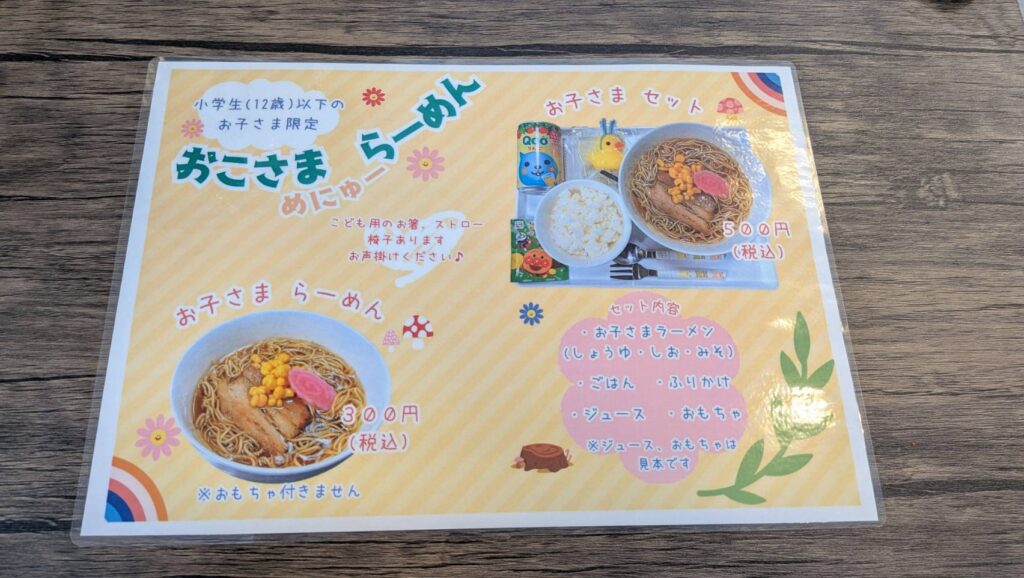 小学生(12歳)以下の
お子さま限定
おこさま らーめん
めにゅー
こども用のお箸、ストロー
椅子あります
お声掛けください♪
お子さま らーめん
300円
(税込)
※おもちゃ付きません
お子さま セット
Qoo
りんご
500円
(税込)
セット内容
・お子さまラーメン
(しょうゆ・しお・みそ)
・ごはん ・ふりかけ
・ジュース ・おもちゃ
※ジュース、おもちゃは
見本です